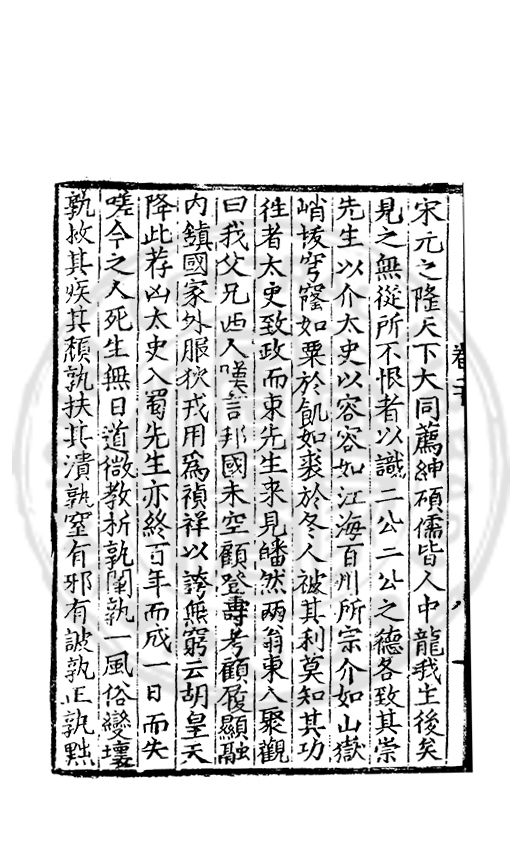 宋元之隆天下大同薦紳碩儒皆人中龍我生後矣
見之無從所不恨者以識二公二公之德各致其崇
先生以介太史以容容如江海百川所宗介如山嶽
峭拔穹窿如粟於飢如裘於冬人被其利莫知其功
徃者太史致政而東先生來見皤然兩翁東人聚觀
曰我父兄西人嘆言邦國未空顧登壽考顧履顯融
内鎮國家外服狄戎用為禎祥以誇無窮云胡皇天
降此荐凶太史入蜀先生亦終百年而成一日而失
嗟今之人死生無日道微教析孰闡孰一風俗變壞
孰救其疾其頹孰扶其潰孰窒有邪有詖孰正孰黜
卷二十
八